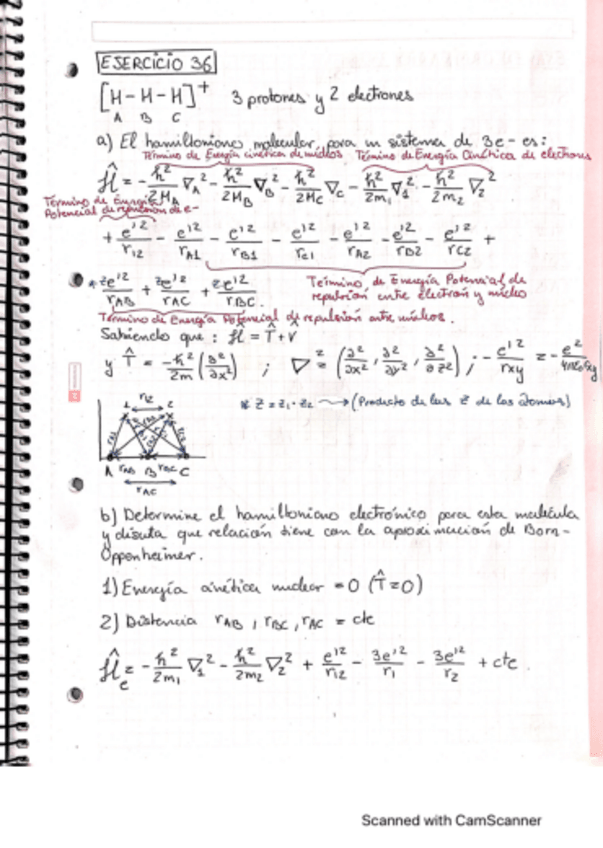 EJERCICIO 36
[H-H-H]⁺ 3 protones y 2 electrones
A B C
a) El hamiltoniano molecular para un sistema de 3e- es:
Término de Energía cinética de núcleos. Término de Energía Cinética de electrones
Ĥ = -ħ²/2M_A ∇_A² - ħ²/2M_B ∇_B² - ħ²/2M_C ∇_C - ħ²/2m₁ ∇₁² - ħ²/2m₂ ∇₂²
Término de Energía
Potencial de repulsión de e-
+ e'²/r₁₂ - e'²/r_A1 - e'²/r_B1 - e'²/r_C1 - e'²/r_A2 - e'²/r_B2 - e'²/r_C2 +
*ze'²/r_AB + ze'²/r_AC + ze'²/r_BC.
Término de Energía Potencial de
repulsión entre electrón y núcleo
Término de Energía Potencial de repulsión entre núcleos.
Sabiendo que: Ĥ = T̂ + V̂
y T̂ = -ħ²/2m (∂²/∂x²) ; ∇² = (∂²/∂x², ∂²/∂y², ∂²/∂z²) ; - e'²/rxy = - e²/4πε₀rxy
* Z = z₁·z₂ → (Producto de las Z de los átomos)
1 r₁₂ 2
A r_AB B r_BC C
r_AC
b) Determine el hamiltoniano electrónico para esta molécula
y discuta que relación tiene con la aproximación de Born-
Oppenheimer.
1) Energía cinética nuclear = 0 (T̂=0)
2) Distancia r_AB, r_BC, r_AC = cte
Ĥ_e = -ħ²/2m₁ ∇₁² - ħ²/2m₂ ∇₂² + e'²/r₁₂ - 3e'²/r₁ - 3e'²/r₂ + cte.
Scanned with CamScanner